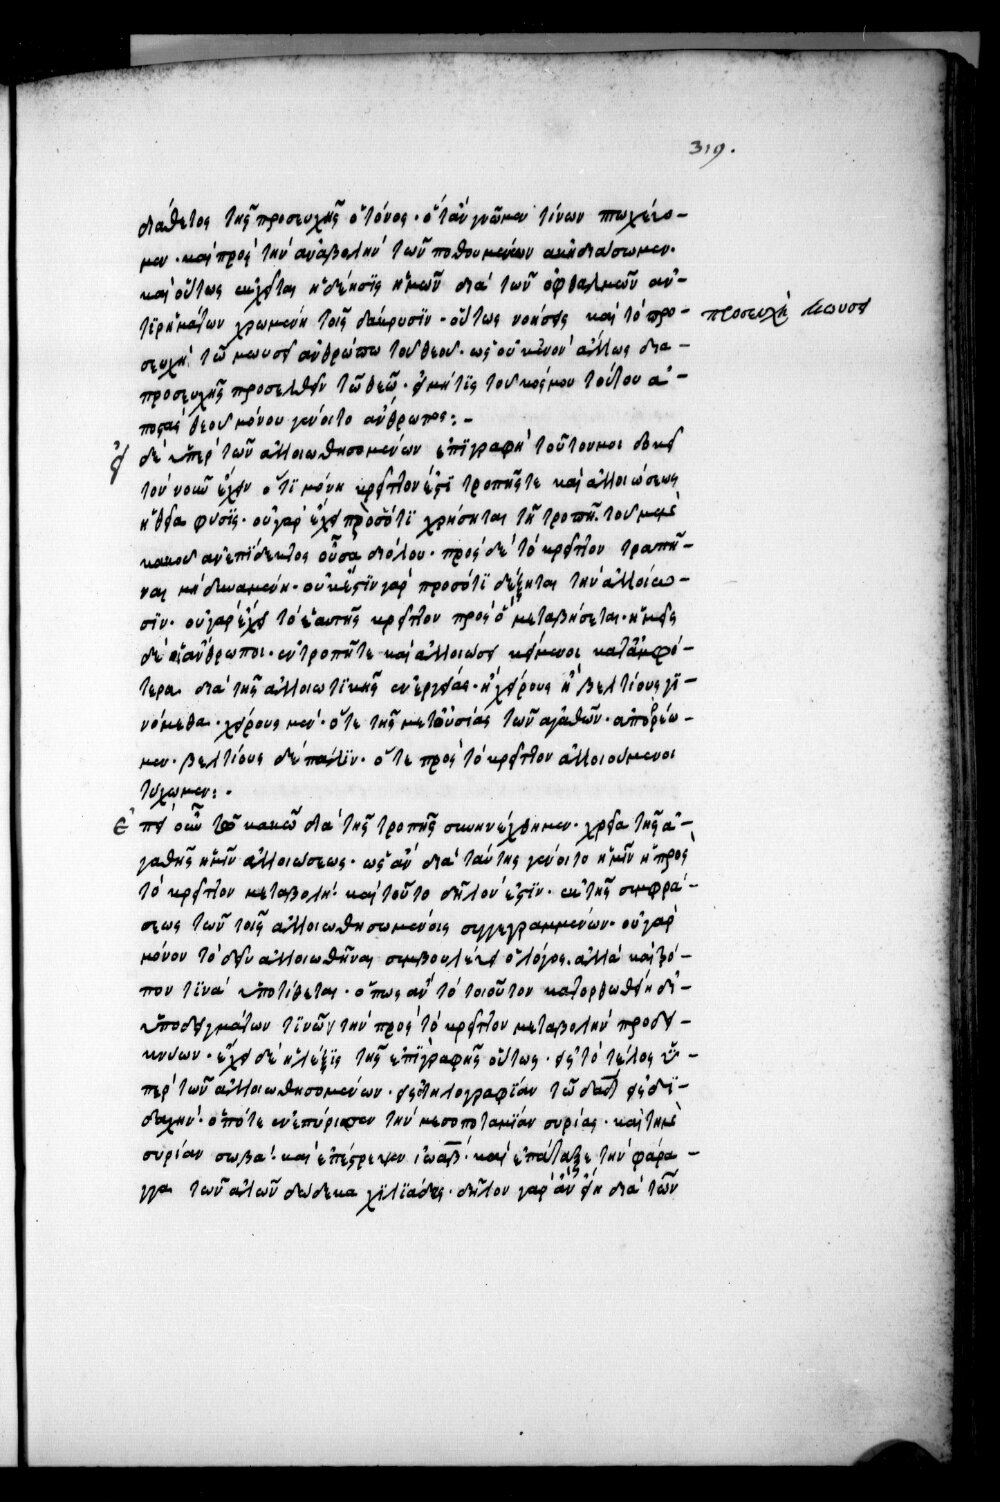 319.
διάθετος τῆς προσευχῆς ὁ τόνος· ὅταν γνῶμεν τίνων πτωχεύο-
μεν· καὶ πρὸς τὴν ἀναβολὴν τῶν ποθουμένων ἀκηδιάσωμεν·
καὶ οὕτως εὔχεται ἡ δέησϊς ἡμῶν διὰ τῶν ὀφθαλμῶν ἀν-
τϊ ῥημάτων χρωμένη τοῖς δάκρυσϊν· οὕτως νοήσεις καὶ τὸ προ-
προσευχὴ μωυσεῖ
σευχὴ τῶ μωυσεῖ ἀνθρώπω τοῦ θεοῦ· ὡς οὐκ ἐνὸν ἄλλως δια-
προσευχῆς προσελθεῖν τῶ θεῶ· εἰ μή τϊς τοῦ κόσμου τούτου ἀ-
ποστὰς θεοῦ μόνου γένοιτο ἄνθρωπος:-
ἡ δὲ ὑπὲρ τῶν ἀλλοιωθησομένων ἐπϊγραφὴ τοῦτό μοι δοκεῖ
τὸν νοῦν ἔχειν ὅτϊ μόνη κρείττον ἐστϊ τροπῆς τε καὶ ἀλλοιώσεως
ἡ θεία φύσϊς· οὐ γὰρ ἔχει πρὸς ὅτϊ χρήσηται τῆ τροπῆ· τοῦ μὲν
κακοῦ ἀνεπίδεκτος οὖσα διόλου· πρὸς δὲ τὸ κρεῖττον τραπῆ-
ναι μὴ δυναμένη· οὐκ ἔστϊν γὰρ πρὸς ὅτϊ δέξηται τὴν ἀλλοίω-
σϊν· οὐ γὰρ ἔχει τὸ ἑαυτῆς κρεῖττον πρὸς ὃ μεταβήσεται· ἡμεῖς
δὲ οἱ ἄνθρωποι· ἐν τροπῆ τε καὶ ἀλλοιώσει κείμενοι κατ᾽ ἀμφό-
τερα διὰ τῆς ἀλλοιωτϊκῆς ἐνεργείας· ἢ χείρους ἢ βελτίους γϊ-
νόμεθα· χείρους μὲν· ὅτε τῆς μετουσίας τῶν ἀγαθῶν· ἀπορρέω-
μεν· βελτίους δὲ πάλϊν· ὅτε πρὸς τὸ κρεῖττον ἀλλοιούμενοι
τύχωμεν:·
ἐπεὶ οὖν τῶ κακῶ διὰ τῆς τροπῆς συνηνέχθημεν· χρεία τῆς ἀ-
γαθῆς ἡμῖν ἀλλοιώσεως· ὡς ἂν διὰ ταύτης γένοιτο ἡμῖν ἡ πρὸς
τὸ κρεῖττον μεταβολή· καὶ τοῦτο δῆλον ἐστϊν· ἐκ τῆς συμφρά-
σεως τῶν τοῖς ἀλλοιωθησωμένοις συγγεγραμμένων· οὐ γὰρ
μόνον τὸ δεῖν ἀλλοιωθῆναι συμβουλεύει ὁ λόγος· ἀλλὰ καὶ τρό-
πον τϊνὰ ὑποτίθεται· ὅπως ἂν τὸ τοιοῦτον κατορθωθείη δι᾽
ὑποδειγμάτων τϊνῶν τὴν πρὸς τὸ κρεῖττον μεταβολὴν προδει-
κνύων· ἔχει δὲ ἡ λέξϊς τῆς ἐπϊγραφῆς οὕτως· εἰς τὸ τέλος ὑ-
πὲρ τῶν ἀλλοιωθησομένων· εἰς στηλογραφΐαν τῶ δαδ εἰς δϊ-
δαχήν· ὁπότε ἐνεπύρισεν τὴν μεσοποταμΐαν συρίας· καὶ τὴν
συρίαν σωβά· καὶ ἐπέστρεψεν ἰωάβ· καὶ ἐπάταξε τὴν φάρα-
γγα τῶν ἁλῶν δώδεκα χϊλϊάδες· δῆλον γὰρ ἂν εἴη διὰ τῶν